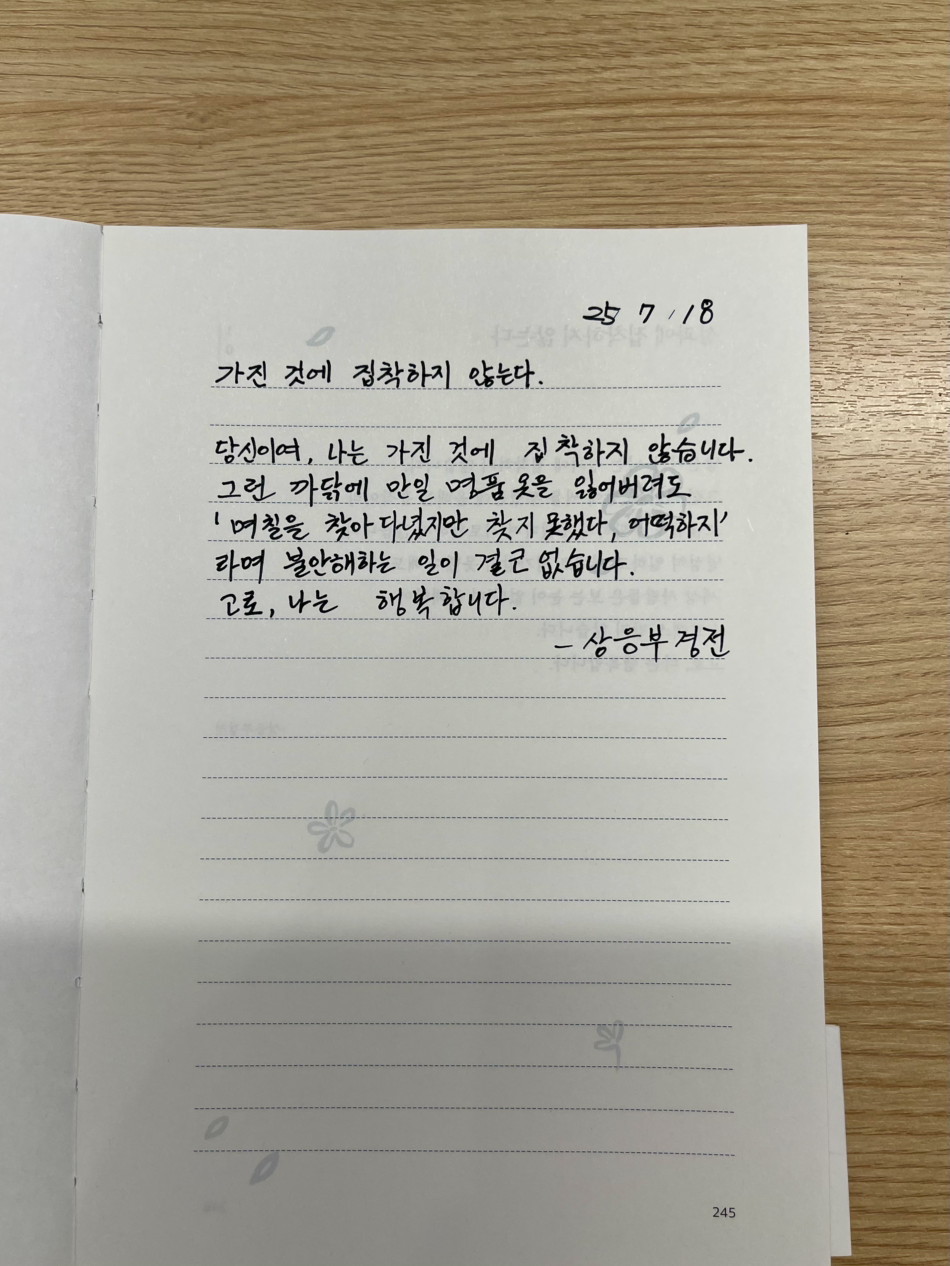 25 7 /18
가진 것에 집착하지 않는다.
당신이여, 나는 가진 것에 집착하지 않습니다.
그런 까닭에 만일 명품 옷을 잃어버려도
'며칠을 찾아 다녔지만 찾지 못했다, 어떡하지'
라며 불안해하는 일이 결코 없습니다.
고로, 나는 행복합니다.
- 상응부 경전
245